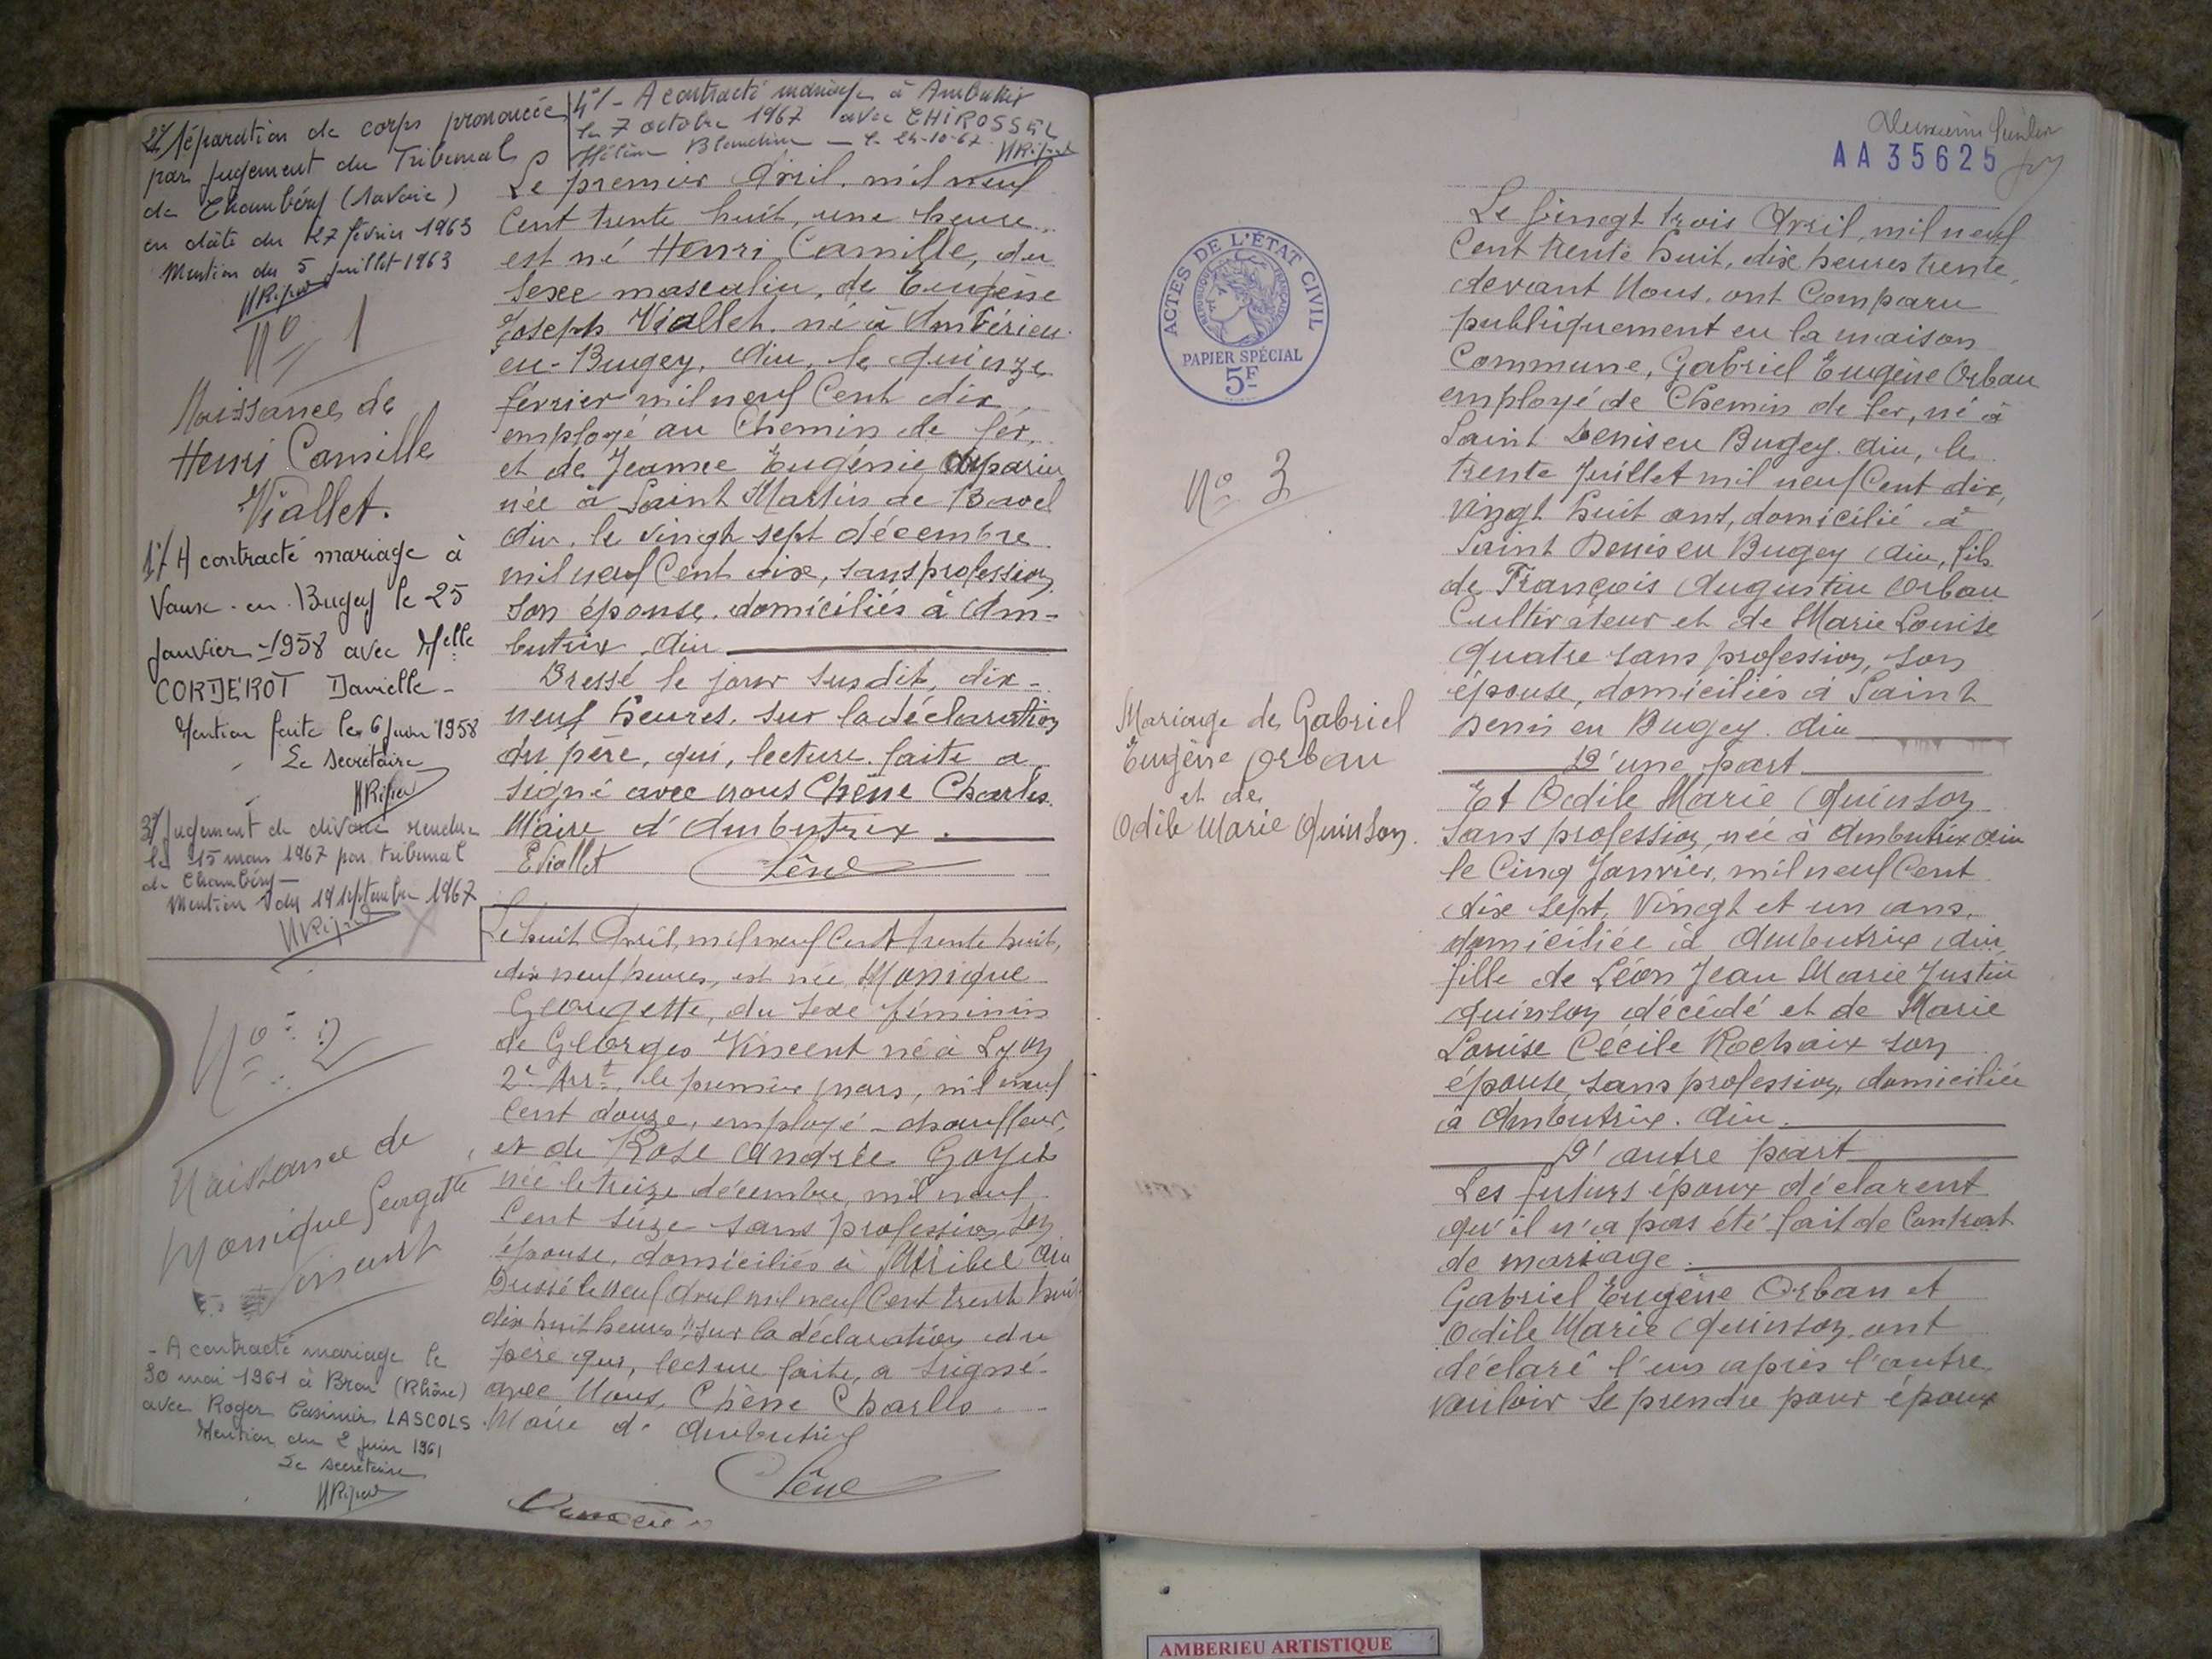 2°/ Séparation de corps prononcée
par jugement du Tribunal
de Chambéry (Savoie)
en date du 27 février 1963
Mention du 5 juillet 1963
N° 1
Naissance de
Henri Camille
Viallet.
1°/ A contracté mariage à
Vaux-en-Bugey le 25
janvier 1958 avec Melle
CORDEROT Danielle -
Mention faite le 6 juin 1958
Le secrétaire
3°/ jugement de divorce rendu
le 15 mars 1967 par tribunal
de Chambéry -
Mention du 19 septembre 1967
4°/ - A contracté mariage à Ambutrix
le 7 octobre 1967 avec CHIROSSEL
Hélène Blandine - le 24-10-67
Le premier Avril, mil neuf
Cent trente huit, une heure
est né Henri Camille, du
sexe masculin, de Eugène
Joseph Viallet, né à Ambérieu
en-Bugey, Ain, le quinze
février mil neuf Cent dix,
employé au Chemin de fer,
et de Jeanne Eugénie
née à Saint Martin de Bavel
Ain, le vingt sept décembre
mil neuf Cent dix, sans profession
son épouse, domiciliés à Am-
butrix, Ain
Dressé le jour susdit, dix-
neuf heures, sur la déclaration
du père, qui, lecture faite a
signé avec nous Chêne Charles
Maire d'Ambutrix.
E Viallet Chêne
N° 2
Naissance de
Monique Georgette
Vincent
- A contracté mariage le
30 mai 1961 à Bron (Rhône)
avec Roger Casimir LASCOLS
Mention du 2 juin 1961
Le secrétaire
Le huit Avril, mil neuf Cent trente huit,
dix neuf heures, est née Monique
Georgette, du sexe féminin
de Georges Vincent né à Lyon
2e Arrt, le premier mars, mil neuf
Cent douze, employé - chauffeur,
et de Rose Andrée Goyet
née le treize décembre, mil neuf
Cent seize sans profession, son
épouse, domiciliés à Miribel Ain
Dressé le neuf Avril mil neuf Cent trente huit
dix huit heures, sur la déclaration du
père qui, lecture faite, a signé
avec Nous, Chêne Charles
Maire d'Ambutrix
Chêne
Vincent
AA 35625
ACTES DE L'ÉTAT CIVIL
RÉPUBLIQUE FRANÇAISE
PAPIER SPÉCIAL
5F
N° 3
Mariage de Gabriel
Eugène Orban
et de
Odile Marie Quinson.
Le vingt trois Avril, mil neuf
Cent trente huit, dix heures trente,
devant Nous, ont Comparu
publiquement en la maison
Commune, Gabriel Eugène Orban
employé de Chemin de fer, né à
Saint Denis en Bugey. Ain, le
trente Juillet mil neuf Cent dix,
vingt huit ans, domicilié à
Saint Denis en Bugey Ain, fils
de François Augustin Orban
Cultivateur et de Marie Louise
Quatre sans profession, son
épouse, domiciliés à Saint
Denis en Bugey. Ain
D'une part
Et Odile Marie Quinson
sans profession, née à Ambutrix Ain
le Cinq Janvier, mil neuf Cent
dix sept, Vingt et un ans,
domiciliée à Ambutrix Ain
fille de Léon Jean Marie Justin
Quinson décédé et de Marie
Louise Cécile Rochaix son
épouse, sans profession, domiciliée
à Ambutrix. Ain.
D'autre part
Les futurs époux déclarent
qu'il n'a pas été fait de Contrat
de mariage.
Gabriel Eugène Orban et
Odile Marie Quinson, ont
déclaré l'un après l'autre
vouloir se prendre pour époux
AMBERIEU ARTISTIQUE